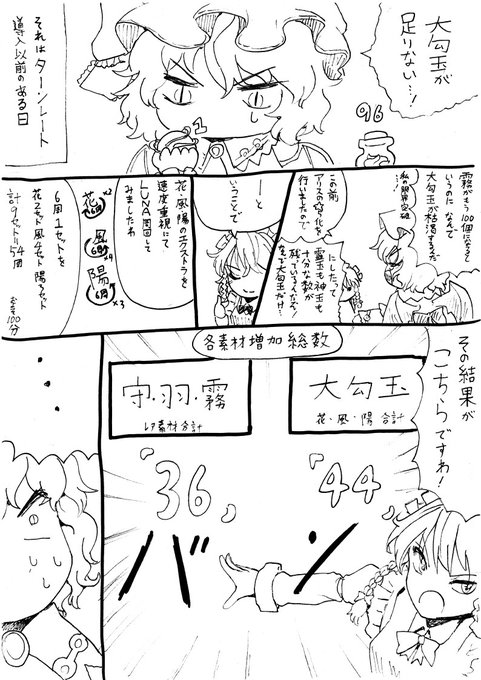 大勾玉が
足りない…!
96
1
それはターンレート
導入以前のある日
霧がもう100個になると
いうのに なんで
大勾玉が枯渇するんだ
私の限界突破
…!
この前
アリスの強化を
行いましたので
にしたって
霊玉も神玉も
十分な数が
残っているんだぞ!
なんで大勾玉だけ…
ーと
いうことで
花・風・陽のエクストラを
速度重視にて
LUNA周回して
みましたわ
花
6周
×2
風
6周
×4
陽
6周
×3
6周1セットを
花2セット風4セット陽3セット
計9セット54周
およそ100分
その結果が
こちらですわ!
各素材増加総数
大勾玉
花・風・陽 合計
守・羽・霧
レア素材合計
『44』
『36』
バンッ
・・・